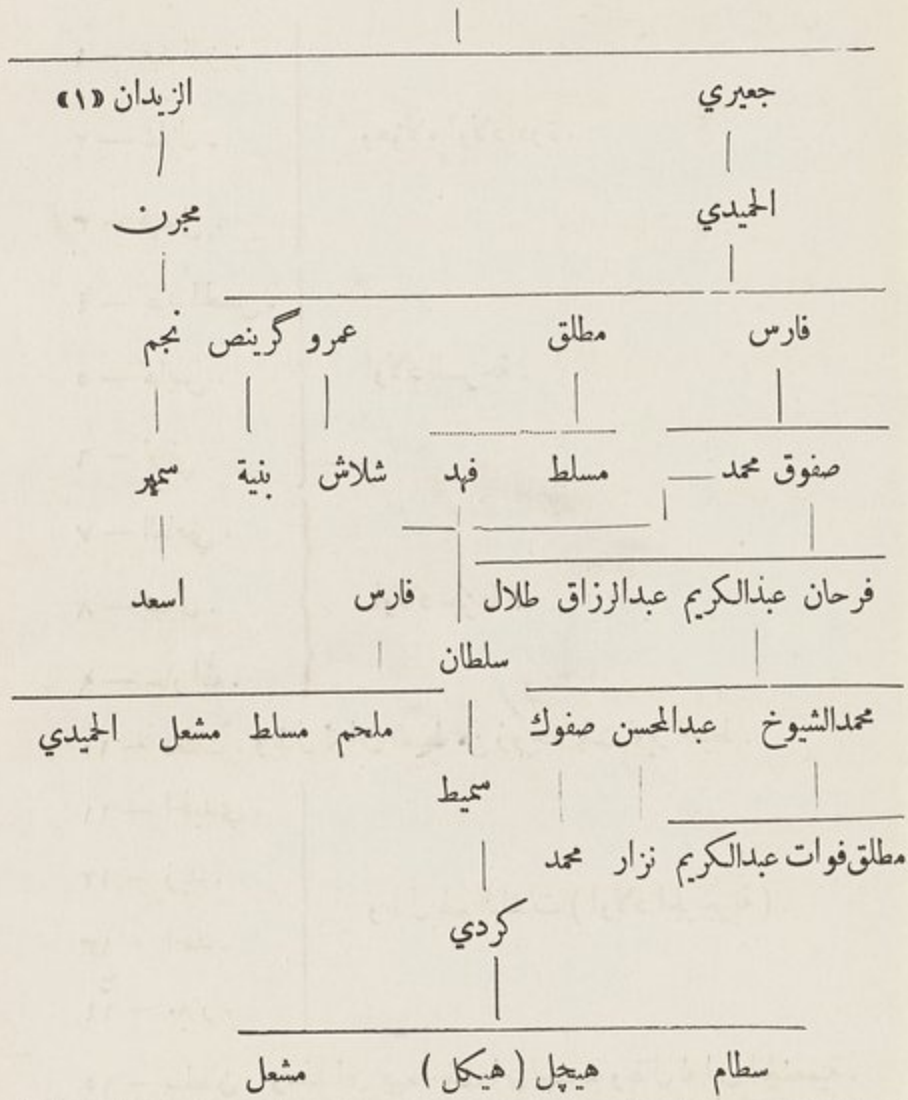 جعيري الزيدان «١»
الحميدي مجرن
فارس مطلق عمرو گرينص نجم
صفوق محمد مسلط فهد شلاش بنية سمير
فرحان عبدالكريم عبدالرزاق طلال فارس اسعد
سلطان
محمدالشيوخ عبدالمحسن صفوك ملحم مساط مشعل الحميدي
سميط
مطلق فوات عبدالكريم نزار محمد
كردي
سطام هيچل ( هيكل ) مشعل